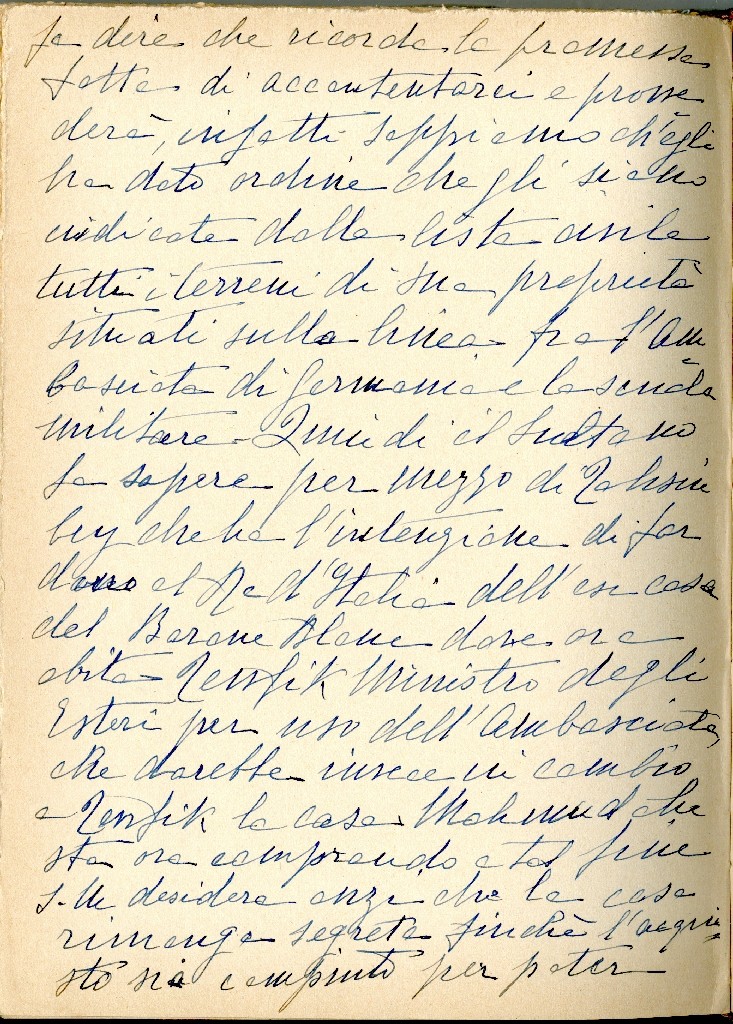 fa dire che ricorda la promessa
fatta di accontentarci e provve
derà, infatti sappiamo ch'egli
ha dato ordine che gli siano
indicate dalla lista civile
tutti i terreni di sua proprietà
situati sulla linea fra l'Am
basciata di Germania e la scuola
militare - Quindi il Sultano
fa sapere per mezzo di Tahsin
bey che ha l'intenzione di far
dono al Re d'Italia dell'ex casa
del Barone Blanc dove ora
abita Tewfik Ministro degli
Esteri per uso dell'Ambasciata,
che darebbe invece in cambio
a Tewfik la casa Mahmud che
sta ora comprando a tal fine
S.M. desidera anzi che la cosa
rimanga segreta finchè l'acqui=
sto sia compiuto per poter